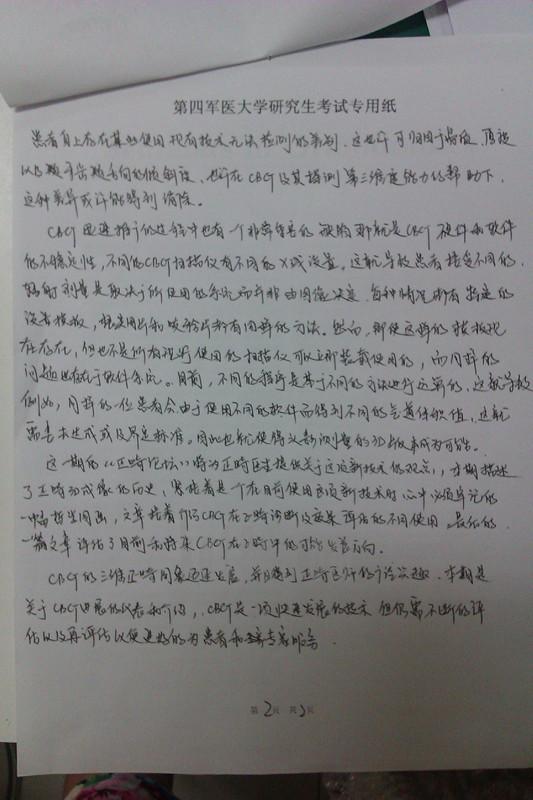 第四军医大学研究生考试专用纸
患者身上存在某些使用现有技术无法检测的差别,这也许可归因于
以及颞, 也许在CBCT及其探测第三维度能力的帮助下,
这种差异或许能得到消除。
CBCT迅速推广的过程中也有一个非常重要的缺陷那就是CBCT硬件和软件
的不稳定性,不同的CBCT扫描仪有不同的X线设置。这就导致患者接受不同的
辐射剂量是取决于所使用的系统而并非由图像决定。每种情况都有特定的
设备模板,根尖片和咬合片都有同样的方法。然而,即使这样的模板现
在存在,但也不是所有现行使用的扫描仪可以立即装载使用的,而同样的
问题也存在于软件系统。目前,不同的程序是基于不同的方法进行运算的,这就导致
例如,同样的一位患者会由于使用不同的软件而得到不同的气道体积值,这就
需要去达成或及界定标准。因此也就使得头影测量的3D版本成为可能。
这一期的《正畸论坛》将为正畸医生提供关于这项新技术的观点,本期描述
了正畸3D成像的历史,紧接着是个在目前使用这项新技术时心中必须牢记的
一幅图画,文章接着介绍CBCT在正畸诊断及效果评估的不同使用。最后的
一篇文章评估了目前和将来CBCT在正畸中的可能发展方向。
CBCT的三维正畸图象迅速发展,并得到正畸医师的广泛兴趣。本期是
关于CBCT进展的代表和介绍,CBCT是一项快速发展的技术但仍需不断的评
估以及再评估以便更好的为患者和专家服务.
第2页 共3页